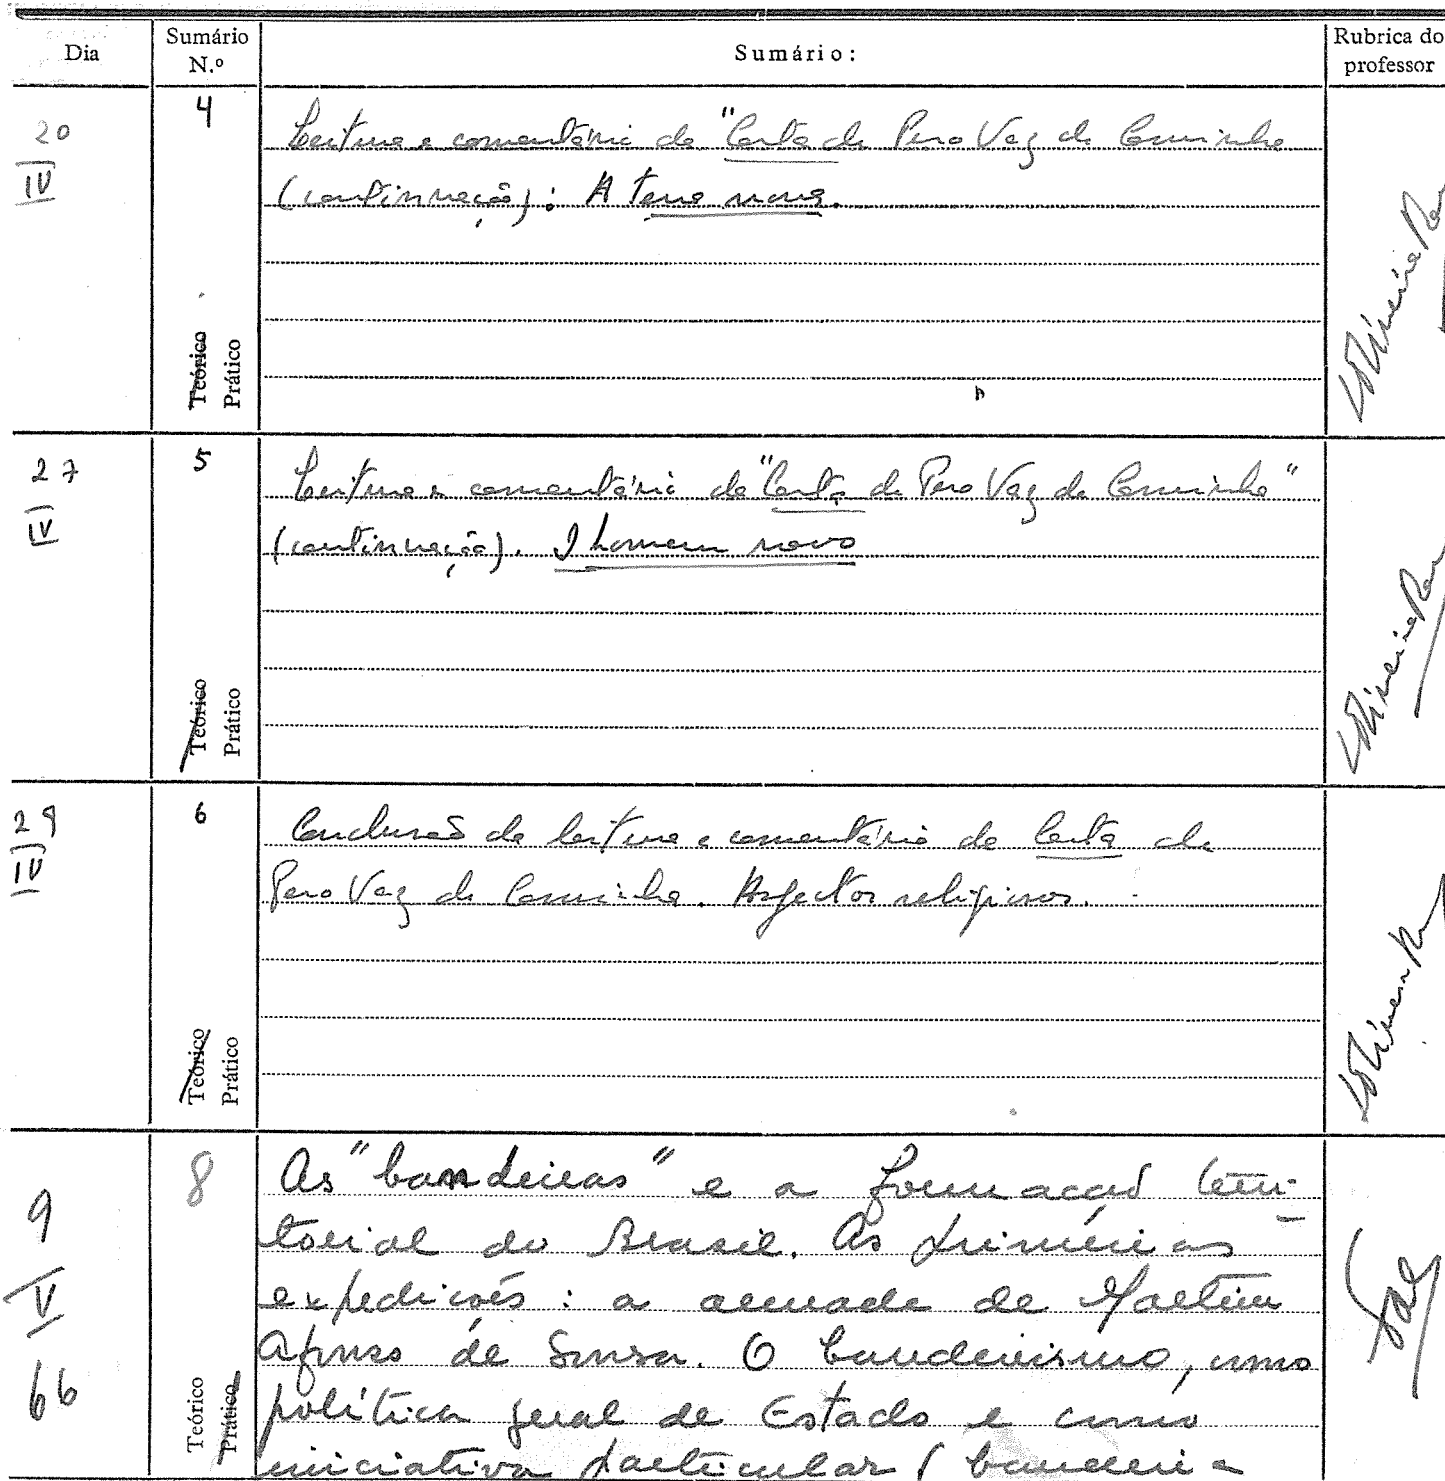 Dia
Sumário N.º
Sumário:
Rubrica do professor
20
IV
4
Leitura e comentário da "Carta de Pero Vaz de Caminha
(continuação): A terra nova.
Teórico
Prático
27
IV
5
Leitura e comentário da "Carta de Pero Vaz de Caminha"
(continuação). O homem novo
Teórico
Prático
29
IV
6
Conclusão da leitura e comentário da Carta de
Pero Vaz de Caminha. Aspectos religiosos.
Teórico
Prático
9
V
66
8
As "bandeiras" e a formação terri-
torial do Brasil. As primeiras
expedições: a armada de Martim
Afonso de Sousa. O bandeirismo, como
política geral de Estado e como
iniciativa particular (
Teórico
Prático